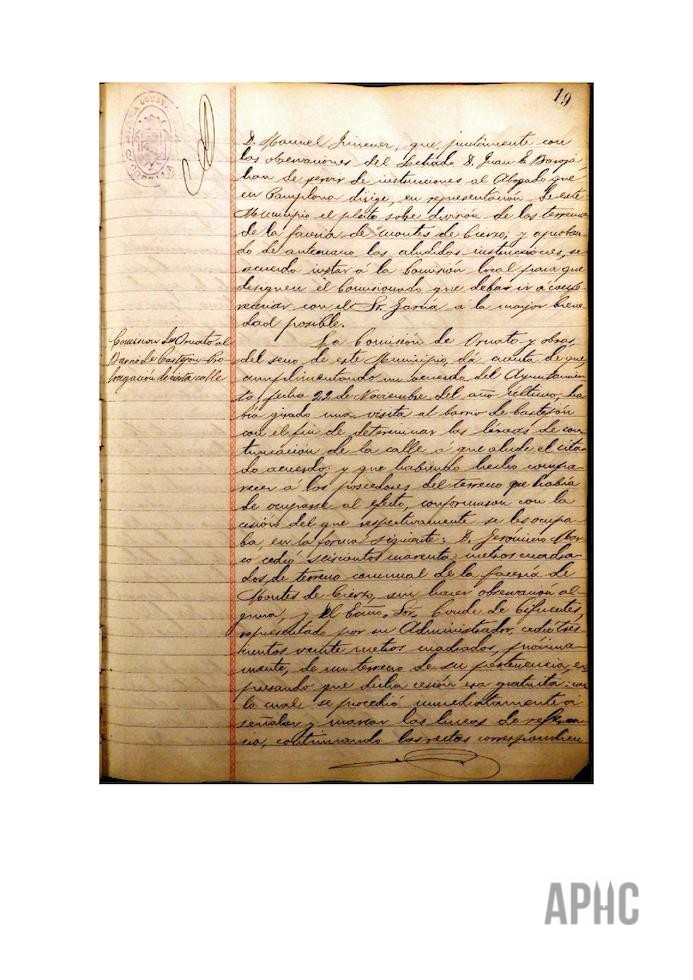 19
D. Manuel Jimenez, que, juntamente con
las observaciones del Letrado D. Juan E.
han de servir de instrucciones al Abogado que
en Pamplona dirige, en representación de este
Municipio el pleito sobre división de los terrenos
de la facería de montes de Cierzo; y aproban-
do de antemano las aludidas instrucciones, se
acuerdo instar á la Comisión local para que
designen el Comisionado que deba ir á confe-
renciar con el Sr. á la mayor breve-
dad posible.
Comision de Ornato al
Barrio de Castejon Pro-
longación de esta calle
La Comisión de Ornato y obras
del seno de este Municipio, dá cuenta de que
cumplimentando un acuerdo del Ayuntamien-
to, fecha 22 de Noviembre del año último, ha-
bía girado una visita al barrio de Castejón
con el fin de determinar las líneas de con-
tinuación de la calle á que alude el cita-
do acuerdo: y que habiendo hecho compa-
recer á los poseedores del terreno que había
de ocuparse al efecto, conformaron con la
cesión del que respectivamente se les ocupa-
ba, en la forma siguiente: D. Jerónimo
cedió seiscientos cuarenta metros cuadra-
dos, de terreno comunal de la facería de
Montes de Cierzo, sin hacer observación al-
guna, y el Excmo. Sor. Conde de Cifuentes,
representado por su Administrador, cedió tres-
cientos veinte metros cuadrados, próxima-
mente, de un terreno de su pertenencia, ex-
presando que dicha cesión era gratuita: con
lo cual se procedió inmediatamente á
señalar y marcar las lineas de referen-
cia, continuando las rectas correspondien
APHC